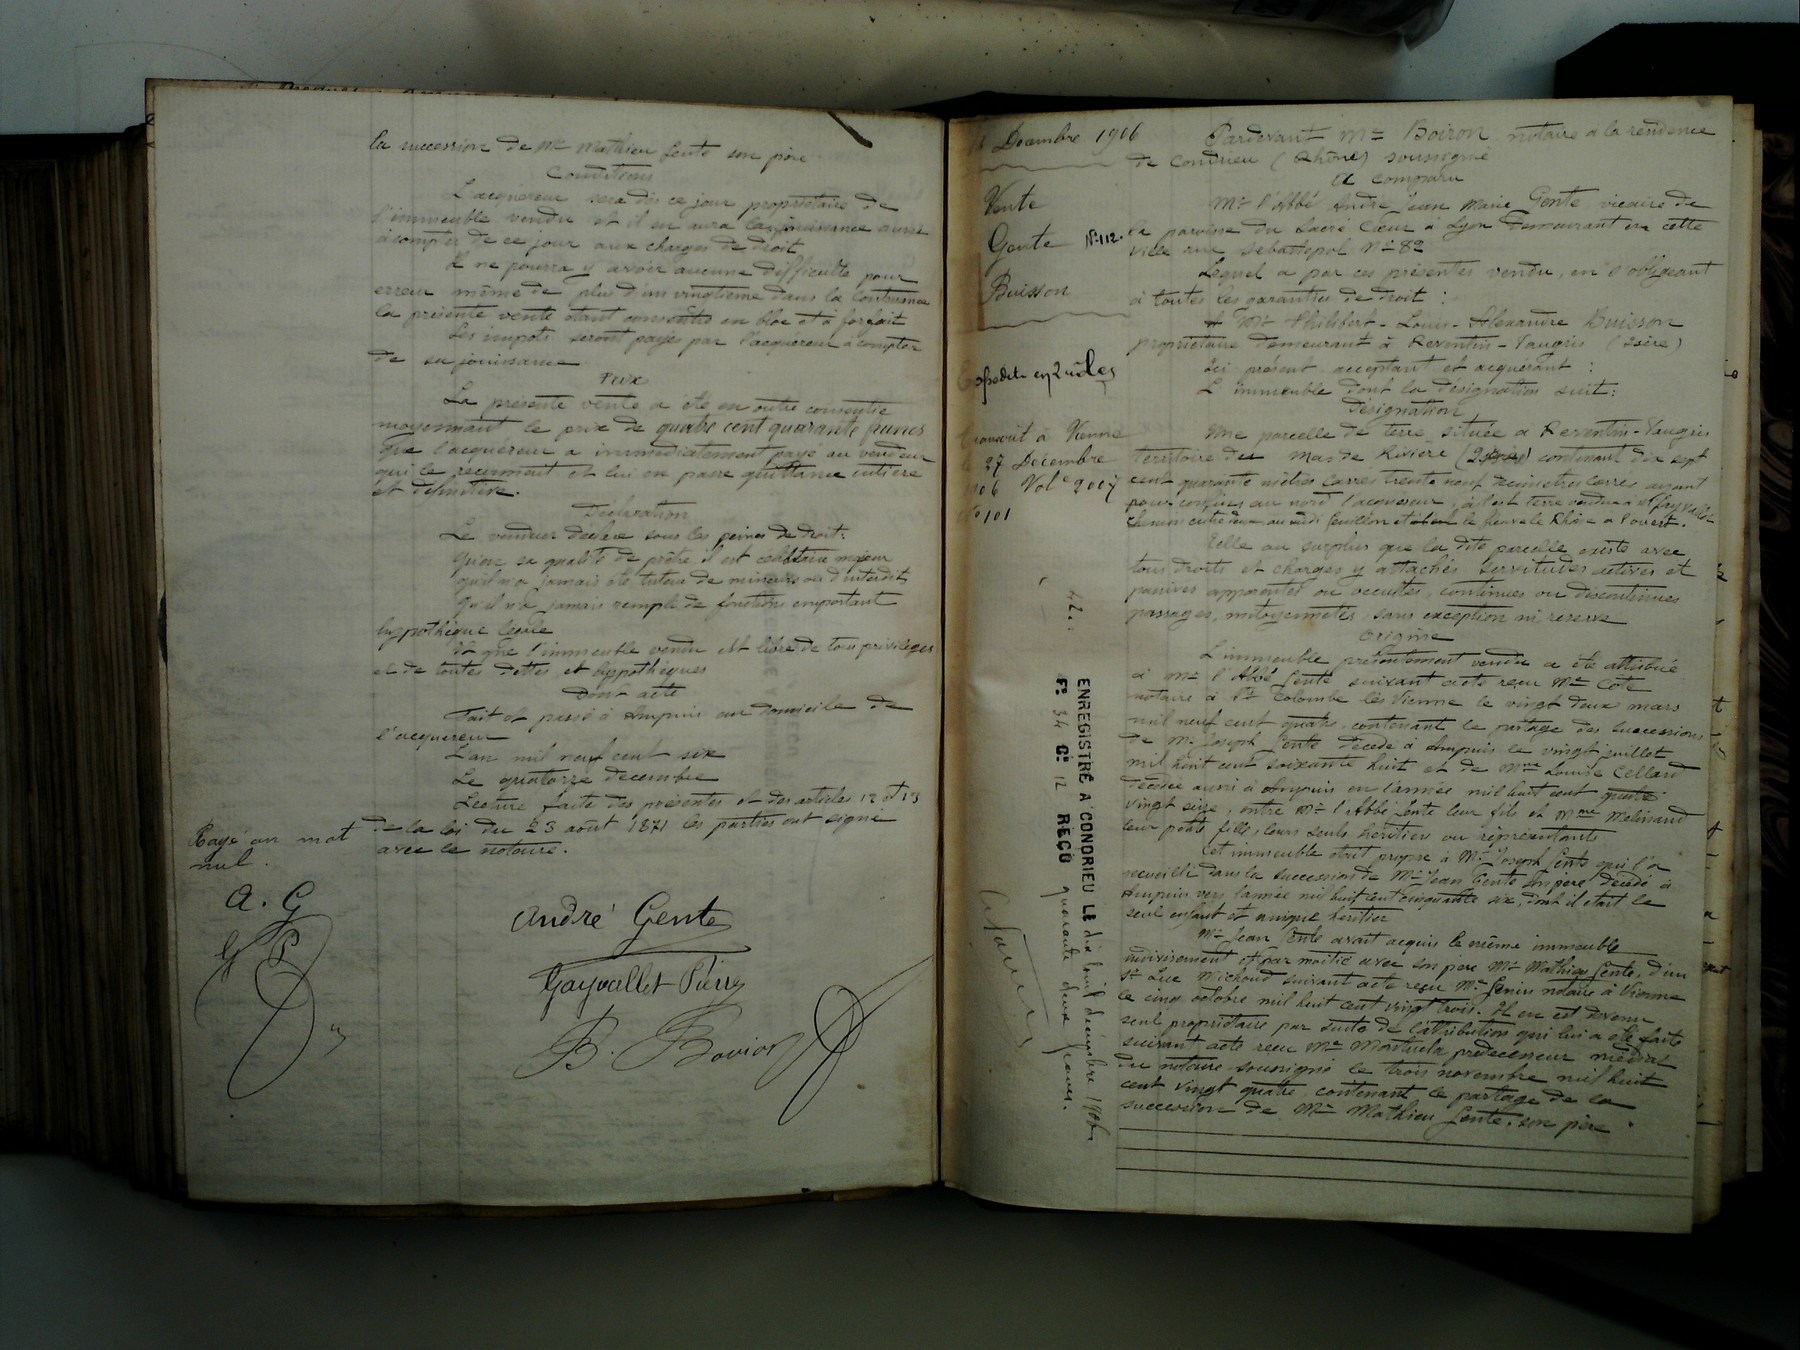 la succession de Mr Mathieu Gente son père
Conditions
L'acquéreur sera dès ce jour propriétaire de
l'immeuble vendu et il en aura la jouissance aussi
à compter de ce jour aux charges de droit
Il ne pourra y avoir aucune difficulté pour
erreur même de plus d'un vingtième dans la contenance
la présente vente étant consentie en bloc et à forfait
Les impots seront payés par l'acquéreur à compter
de sa jouissance
Prix
La présente vente a été en outre consentie
moyennant le prix de quatre cent quarante francs
que l'acquéreur a immédiatement payé au vendeur
qui le reconnait et lui en passe quittance entière
et définitive.
Déclaration
Le vendeur déclare sous les peines de droit:
Qu'en sa qualité de prêtre il est célibataire majeur
qu'il n'a jamais été tuteur de mineurs ou d'interdit
Qu'il n'a jamais rempli de fonctions emportant
hypothèque légale
Et que l'immeuble vendu est libre de tous privilèges
et de toutes dettes et hypothèques
Dont acte
Fait et passé à Ampuis au domicile de
l'acquéreur
L'an mil neuf cent six
Le quatorze décembre
Lecture faite des présentes et des articles 12 et 13
de la loi du 23 août 1871 les parties ont signé
avec le notaire.
Rayé un mot
nul.
A. G
G P
André Gente
Gayvallet Pierre
B. Boiron
Décembre 1906
Vente
Gente
N° 112.
Buisson
Expédité en 2 rôles
Transcrit à Vienne
le 27 Décembre
1906 Vol 2007
N° 101
ENREGISTRÉ A CONDRIEU LE dix huit décembre 1906
F° 34 C° 12 REÇU quarante deux francs.
Pardevant Me Boiron notaire à la résidence
de Condrieu (Rhône) soussigné
A comparu
Mr l'Abbé André Jean Marie Gente vicaire de
la paroisse du Sacré Cœur à Lyon demeurant en cette
ville rue Sébastopol N° 82
Lequel a par ces présentes vendu, en s'obligeant
à toutes les garanties de droit :
A Mr Philibert-Louis-Alexandre Buisson
propriétaire demeurant à Reventin-Vaugris (Isère)
Ici présent acceptant et acquérant :
L'immeuble dont la désignation suit:
Désignation
Une parcelle de terre située à Reventin-Vaugris
territoire du Mas de Rivière (Isère) contenant dix sept
cent quarante mètres carrés trente neuf décimètres carrés ayant
pour confins au nord l'acquéreur, à l'est terre vendue à
chemin entre deux au midi et le fleuve le Rhône à l'ouest.
Telle au surplus que la dite parcelle existe avec
tous droits et charges y attachés servitudes actives et
passives apparentes ou occultes, continues ou discontinues
passages, mitoyennetés, sans exception ni réserve
Origine
L'immeuble présentement vendu a été attribué
à Mr l'Abbé Gente suivant acte reçu Me Cote
notaire à Ste Colombe lès Vienne le vingt deux mars
mil neuf cent quatre contenant le partage des successions
de Mr Joseph Gente décédé à Ampuis le vingt juillet
mil huit cent soixante huit et de Mme Louise Cellard
décédée aussi à Ampuis en l'année mil huit cent quatre
vingt seize, entre Mr l'Abbé Gente leur fils et Mme Melinand
leur petite fille, leurs seuls héritiers ou représentants
Cet immeuble était propre à Mr Joseph Gente qui l'a
recueilli dans la succession de Mr Jean Gente son père décédé à
Ampuis vers l'année mil huit cent cinquante six, dont il était le
seul enfant et unique héritier
Mr Jean Gente avait acquis le même immeuble
indivisément et par moitié avec son père Mr Mathieu Gente, d'un
Sr Luc Michoud suivant acte reçu Me notaire à Vienne
le cinq octobre mil huit cent vingt trois. Il en est devenu
seul propriétaire par suite de l'attribution qui lui a été faite
suivant acte reçu Me prédécesseur médiat
du notaire soussigné le trois novembre mil huit
cent vingt quatre, contenant le partage de la
succession de Mr Mathieu Gente, son père.